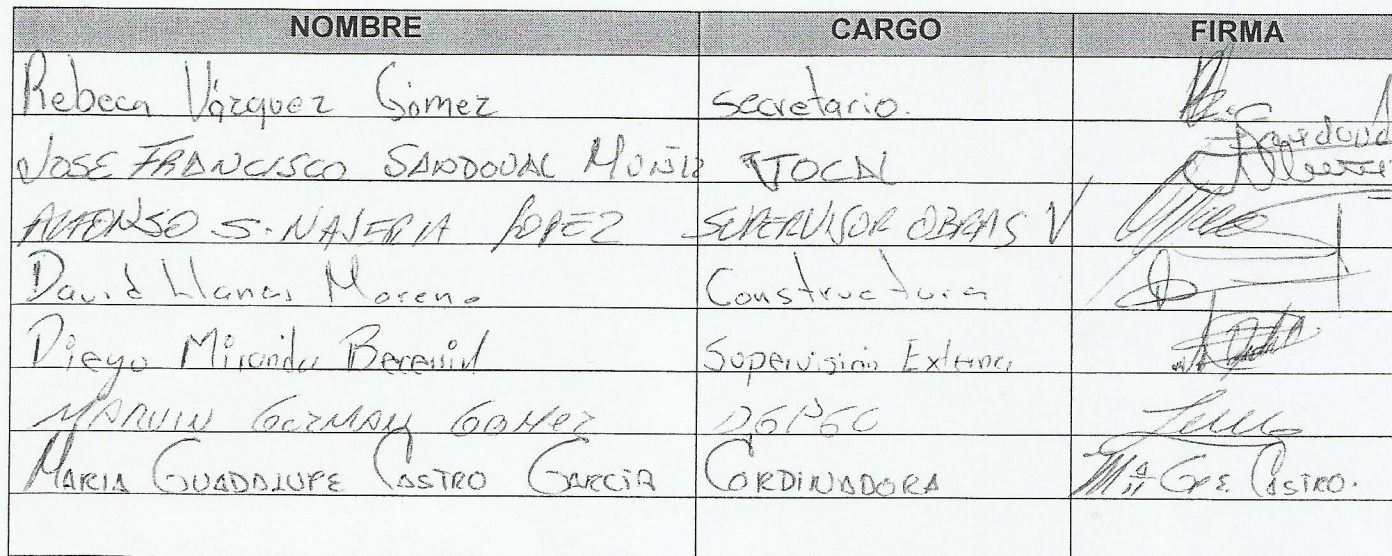 NOMBRE CARGO FIRMA
Rebeca Vázquez Gómez secretario.
JOSE FRANCISCO SANDOVAL MUÑIZ VOCAL Sandoval
ALFONSO S. NAJERA LOPEZ SUPERVISOR OBRAS V
David Llanas Moreno Constructora
Diego Miranda Supervisión Externa
MARVIN GUZMAN GOMEZ
MARIA GUADALUPE CASTRO GARCIA CORDINADORA Ma GPE CASTRO.